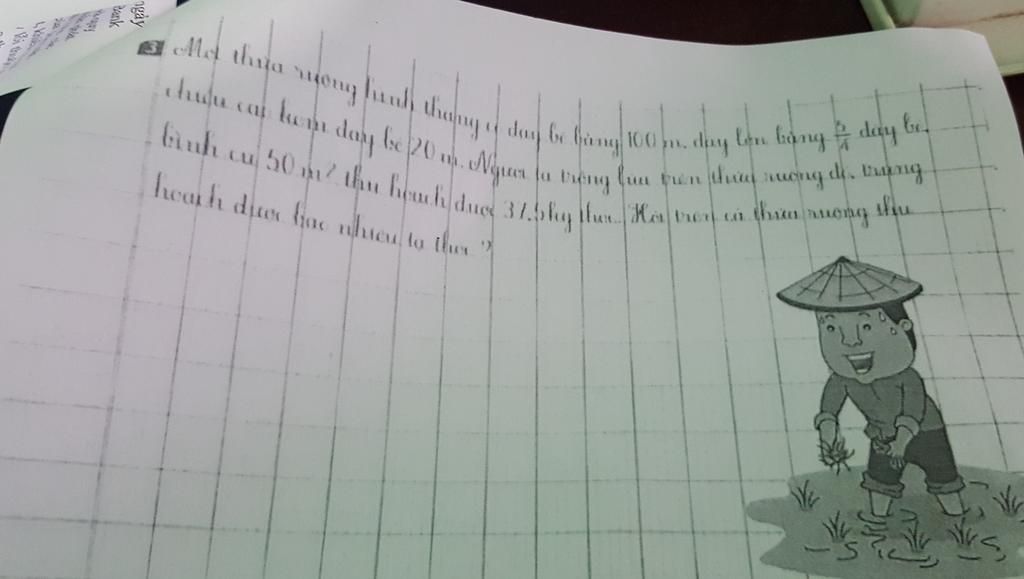 ngày
3 Một thửa ruộng hình thang có đáy bé bằng 100 m, đáy lớn bằng 5/4 đáy bé,
chiều cao kém đáy bé 20 m. Người ta trồng lúa trên thửa ruộng đó, trung
bình cứ 50 m² thu hoạch được 37,5kg thóc. Hỏi trên cả thửa ruộng thu
hoạch được bao nhiêu tạ thóc ?